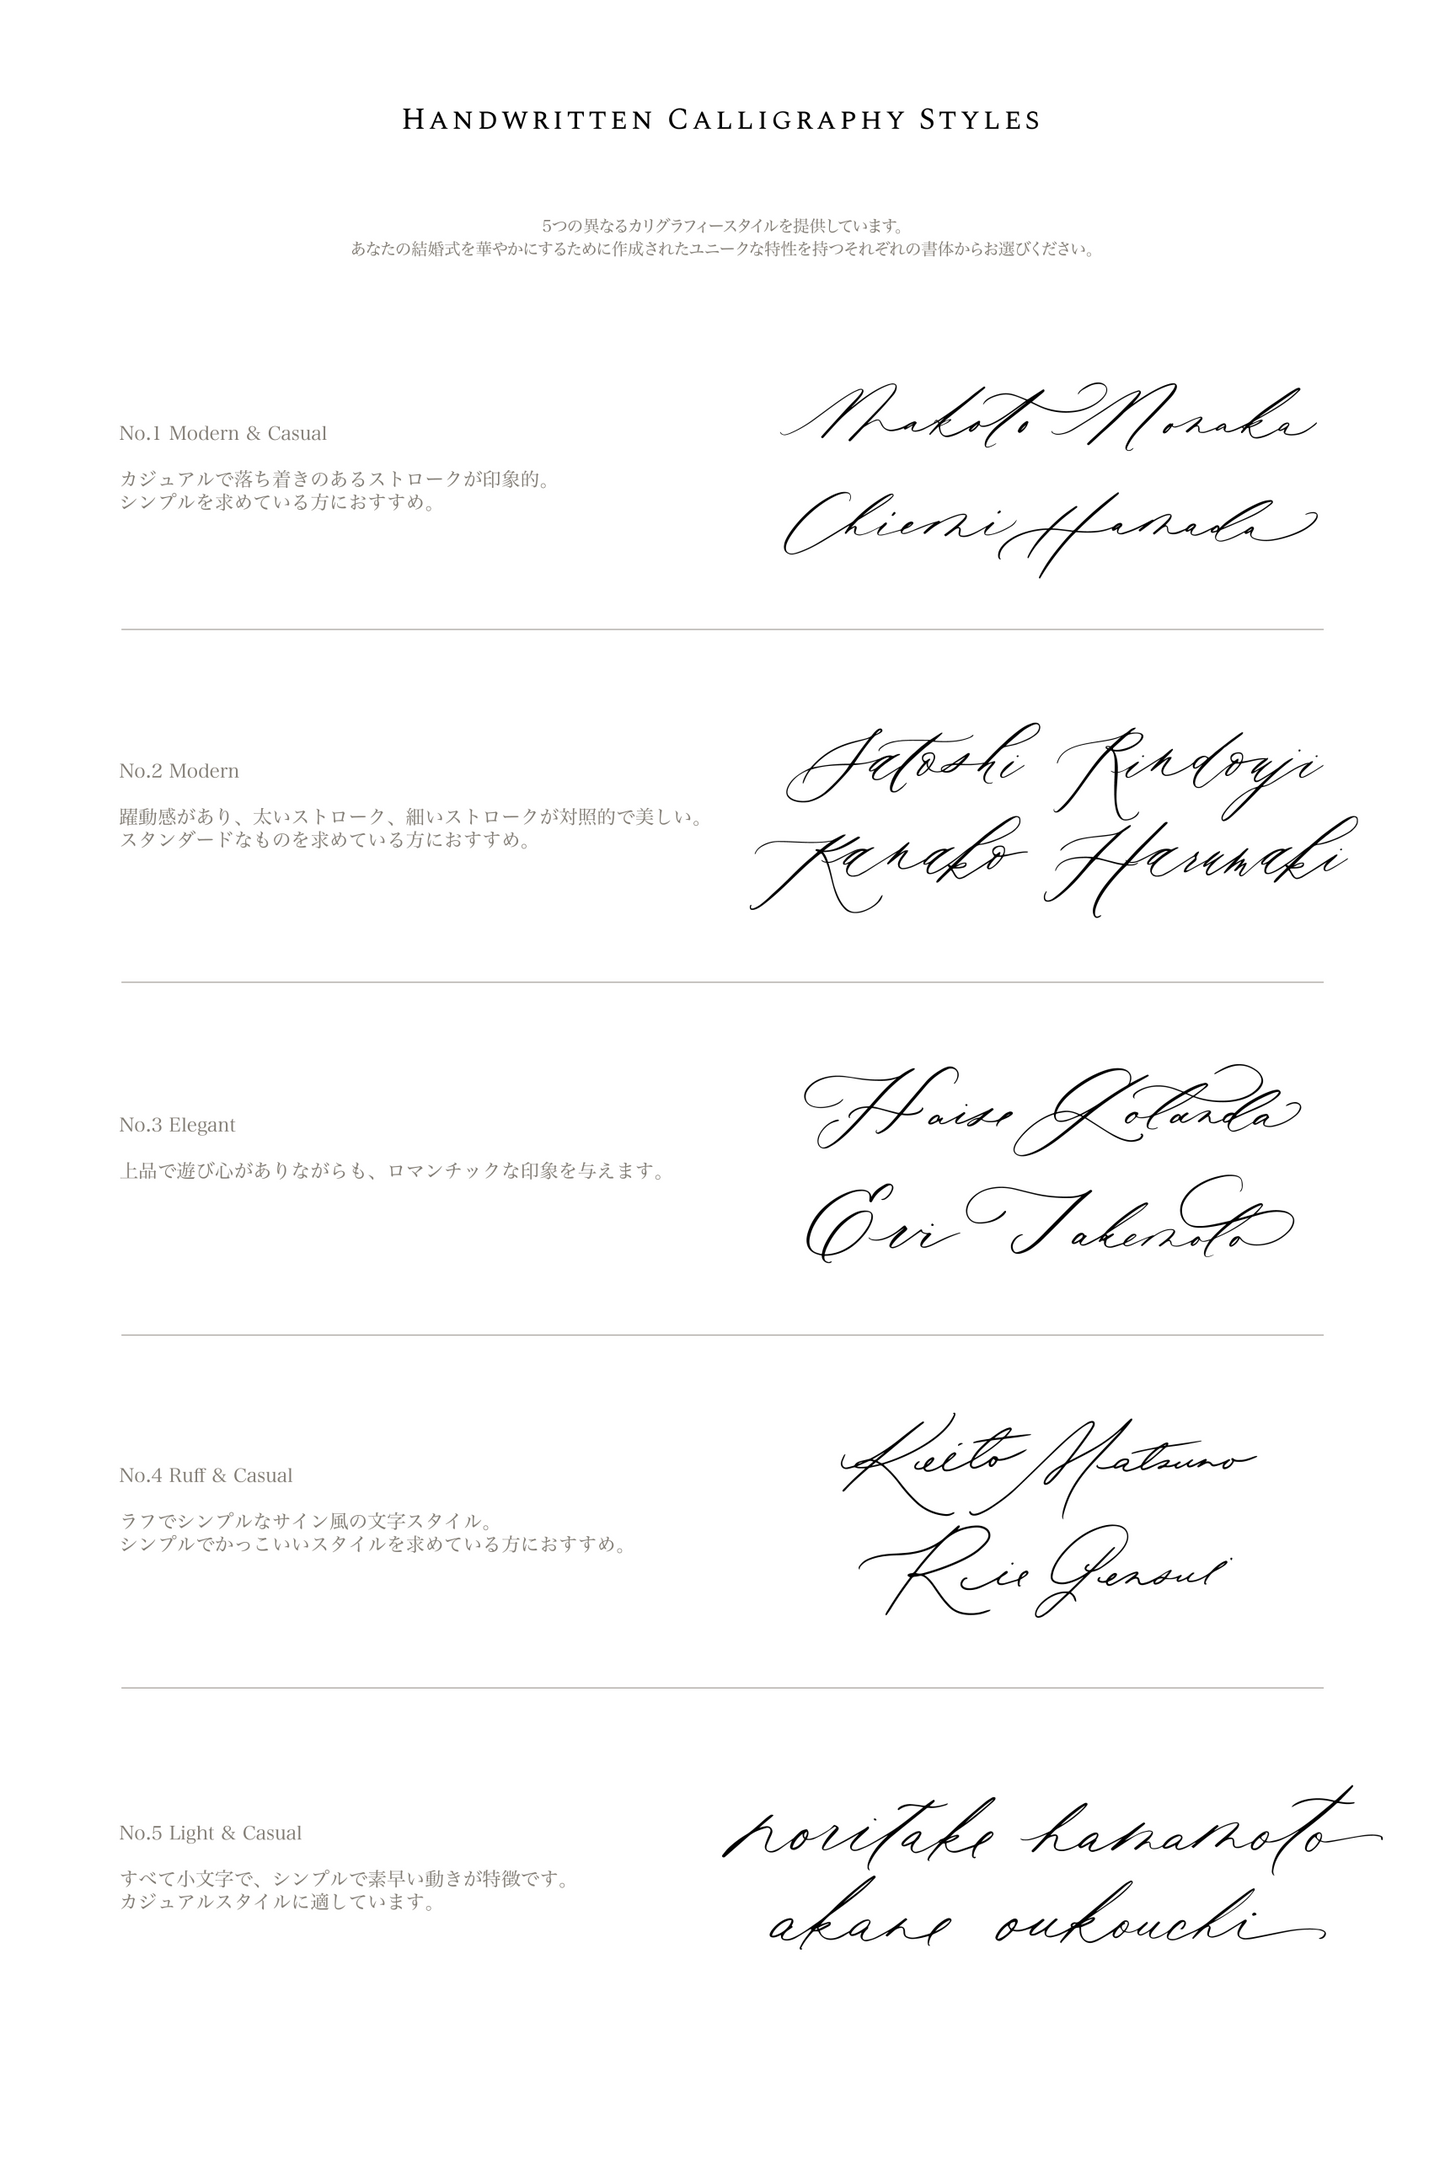 HANDWRITTEN CALLIGRAPHY STYLES
5つの異なるカリグラフィースタイルを提供しています。
あなたの結婚式を華やかにするために作成されたユニークな特性を持つそれぞれの書体からお選びください。
No.1 Modern & Casual
カジュアルで落ち着きのあるストロークが印象的。
シンプルを求めている方におすすめ。
Makoto Nonaka
Chiemi Hamada
No.2 Modern
躍動感があり、太いストローク、細いストロークが対照的で美しい。
スタンダードなものを求めている方におすすめ。
Satoshi Rindouji
Kanako Harumaki
No.3 Elegant
上品で遊び心がありながらも、ロマンチックな印象を与えます。
Haise Gotanda
Eri Takemoto
No.4 Ruff & Casual
ラフでシンプルなサイン風の文字スタイル。
シンプルでかっこいいスタイルを求めている方におすすめ。
Keito Matsuno
Rie Gensui
No.5 Light & Casual
すべて小文字で、シンプルで素早い動きが特徴です。
カジュアルスタイルに適しています。
noritake hamamoto
akane oukouchi